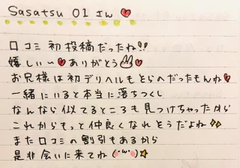 Sasatsu 01 さん❤
口コミ初投稿だったね!!
嬉しい〜❤ありがとう
お兄様は初デリヘルもどらのだったもんね❤
一緒にいると本当に落ちつくし
なんなら似てるところも見つけちゃったから
これからもっと仲良くなれそうだよね!!
また口コミの割引もあるから
是非会いに来てね(*'ω'*)☆